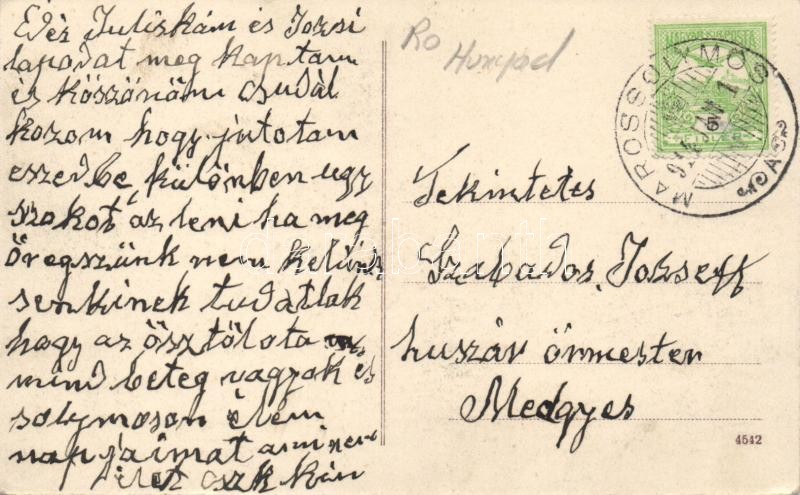 Édes Juliskám és Jozsi
lapodat meg kaptam
és köszönöm csudál
kozom hogy jutotam
eszedbe, különben ugy
szokot az leni ha meg
öregszünk nem kelünk
senkinek tudatlak
hogy az ösz töl ota
mind beteg vagyok és
solymoson élém
napjaimat ami nem
élet
Ro
Hunyad
MAROSSOLYMOS
Tekintetes
Szabados Jozseff
huszár örmester
Medgyes
4542